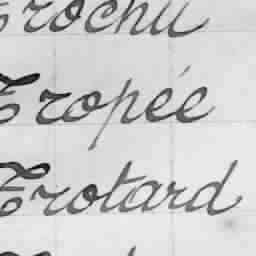 Trochu
Tropée
Trotard